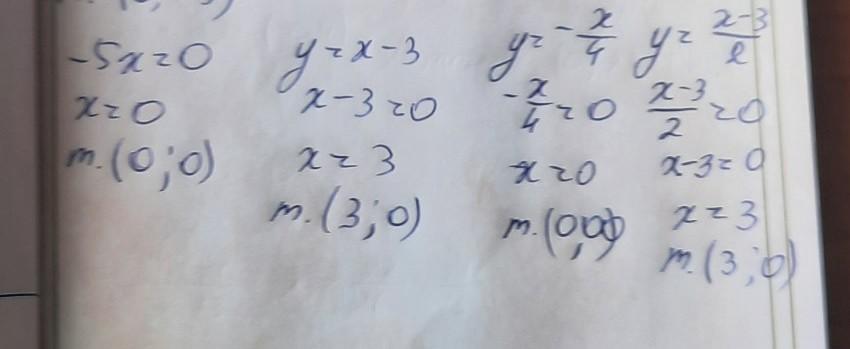 -5x=0
x=0
т.(0;0)
y=x-3
x-3=0
x=3
т.(3;0)
y=-x/4
-x/4=0
x=0
т.(0;0)
y=(x-3)/2
(x-3)/2=0
x-3=0
x=3
т.(3;0)